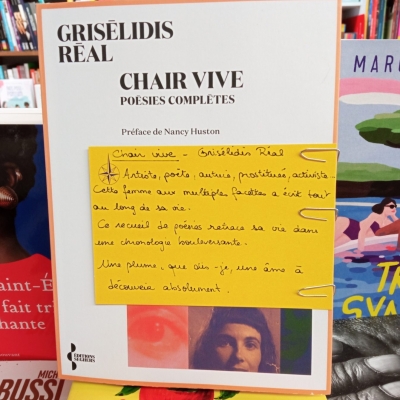 GRISĒLIDIS
RĒAL
CHAIR VIVE
POĒSIES COMPLĒTES
Préface de Nancy Huston
Chair vive - Grisélidis Réal
Artiste, poète, autrice, prostituée, activiste...
Cette femme aux multiples facettes a écrit tout
au long de sa vie.
Ce recueil de poésies retrace sa vie dans
une chronologie bouleversante.
Une plume, que dis-je, une âme à
découvrir absolument.
ÉDITIONS
SEGHERS
MARC
TR
SVA
aint-É
fait tri
hante
MICH
BUSSI